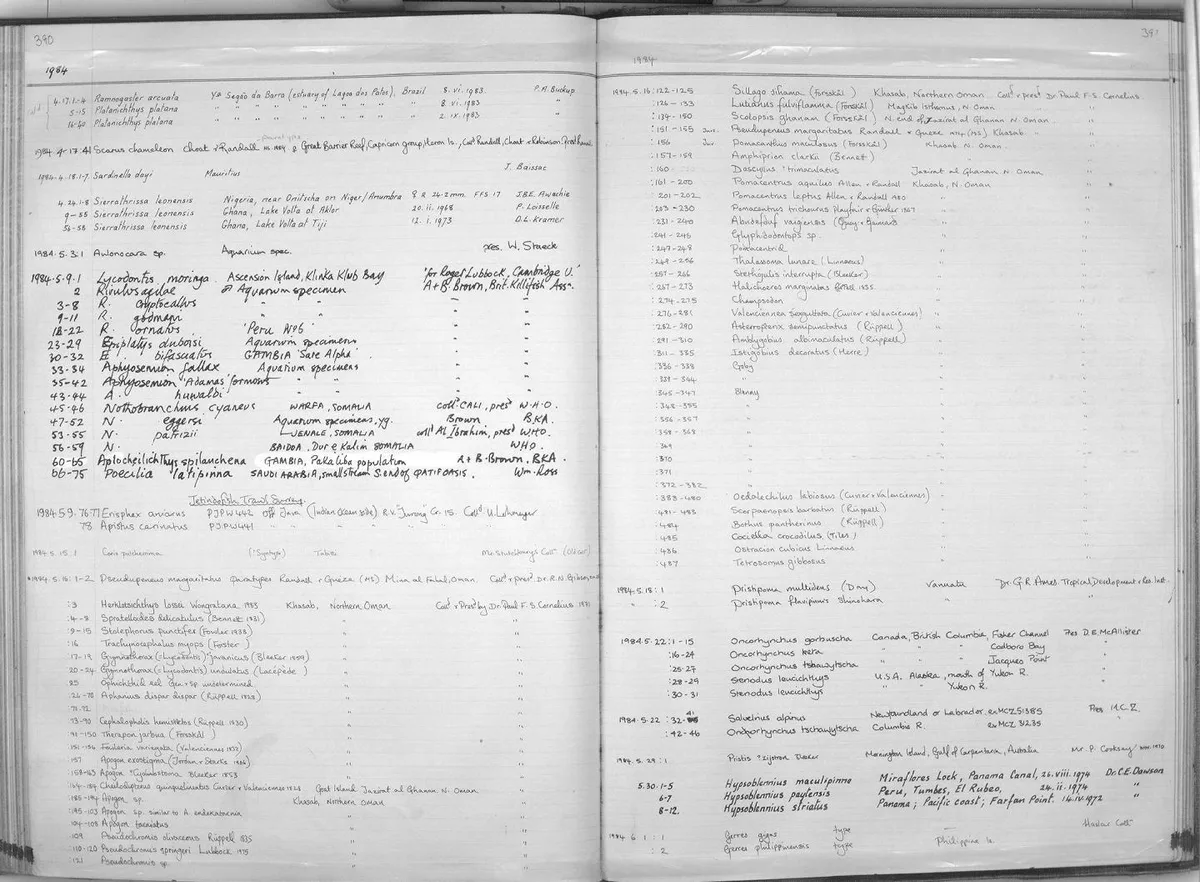 390
1984
4.17.1-4 Ramnogaster arcuata Segão da Barra (estuary of Lagoa dos Patos), Brazil 8.vi.1983. P.A. Buckup
5-15 Platanichthys platana " " " " " " " 8.vi.1983 "
16-40 Platanichthys platana " " " " " " " 2.ix.1983 "
paratype
1984.4.17.41 Scarus chameleon Choat & Randall MS. 1984 Great Barrier Reef, Capricorn group, Heron Is., Coll Randall, Choat & Robinson;
1984.4.18.1-7. Sardinella dayi Mauritius J. Baissac
4.24.1-8 Sierrathrissa leonensis Nigeria, near Onitscha on Niger/Anambra 24.2mm FFS 17 J.B.E. Awachie
9-55 Sierrathrissa leonensis Ghana, Lake Volta at Aklor 20.ii.1968 P. Loiselle
56-58 Sierrathrissa leonensis Ghana, Lake Volta at Tiji 12.i.1973 D.L. Kramer
1984.5.3:1 Aulonocara sp. Aquarium spec. pres. W. Staeck
1984.5.9.1 Lycodontis moringa Ascension Island, Klinka Klub Bay 'for Roger Lubbock, Cambridge U.'
2 Rivulus agilae ♂ Aquarium specimen A+B. Brown, Brit. Killifish Assn.
3-8 R. cryptocallus " "
9-11 R. godmani " "
12-22 R. ornatus 'Peru NP6' "
23-29 Epiplatys duboisi Aquarium specimens "
30-32 E. bifasciatus GAMBIA 'Sate Alpha' "
33-34 Aphyosemion fallax Aquarium specimens "
35-42 Aphyosemion 'Adamas' formosus " " "
43-44 A. huwalbi " " "
45-46 Nothobranchius cyaneus WARFA, SOMALIA coll. CALI, pres. W.H.O.
47-52 N. eggersi Aquarium specimens, yg. Brown BKA.
53-55 N. patrizii JENALE, SOMALIA coll. Al Ibrahim, pres. WHO.
56-59 N. BAIDOA, Dur e Kalim SOMALIA WHO.
60-65 Aplocheilichthys spilauchena GAMBIA, Pakaliba population A+B. Brown, BKA.
66-75 Poecilia latipinna SAUDI ARABIA, small stream S end of QATIF OASIS. Wm. Ross
Jetindofish Trawl Survey
1984.5.9.76-77 Erisphex aniarus PJPW442 off Java (Indian Ocean side) R.V. "Jurong" Cr. 15. Coll. U. Lohmeyer
78 Apistus carinatus PJPW441 " " " "
1984.5.15.1 Coris pulcherrima (?Syntype) Tahiti Mr. Stutchbury's Coll. (Old Cat)
1984.5.16.1-2 Pseudupeneus margaritatus paratypes Randall & Guéze (MS) Mina al Fahal, Oman. Coll. & pres. Dr. R.N. Gibson
:3 Herklotsichthys lossei Wongratana 1983 Khasab, Northern Oman Coll. & Pres. by Dr. Paul F.S. Cornelius
:4-8 Spratelloides delicatulus (Bennett 1831) " "
:9-15 Stolephorus punctifer (Fowler 1938) " "
:16 Trachynocephalus myops (Forster) " "
:17-19 Gymnothorax (=Lycodontis) javanicus (Bleeker 1859) " "
20-24 Gymnothorax (=Lycodontis) undulatus (Lacépède) " "
25 Ophichthid eel Gen & sp. undetermined " "
:26-70 Aphanius dispar dispar (Rüppell 1828) " "
71-72 " "
:73-90 Cephalopholis hemistiktos (Rüppell 1830) " "
:91-150 Therapon jarbua (Forsskål) " "
:151-156 Foularia variegata (Valenciennes 1832) " "
157 Apogon exostigma (Jordan & Starks 1906) " "
:158-163 Apogon cyanosoma Bleeker 1853 " "
:164-184 Cheilodipterus quinquelineatus Cuvier & Valenciennes 1828 Goat Island, Jazirat al Ghanam N. Oman "
:185-194 Apogon sp. Khasab, Northern Oman "
:195-103 Apogon sp. similar to A. endekataenia " "
:104-108 Apogon taeniatus " "
:109 Pseudochromis olivaceus Rüppell 1835 " "
:110-120 Pseudochromis springeri Lubbock 1975 " "
:121 Pseudochromis sp. " "
391
1984
1984.5.16:122-125 Sillago sihama (Forsskål) Khasab, Northern Oman Coll. & pres. Dr. Paul F.S. Cornelius
:126-133 Lutjanus fulviflamma (Forsskål) Maqlib Isthmus, N. Oman "
:134-150 Scolopsis ghanam (Forsskål) N. end of Jazirat al Ghanam N. Oman "
:151-155 Juv. Pseudupeneus margaritatus Randall & Guéze 1974 (MS) Khasab "
:156 Juv. Pomacanthus maculosus (Forsskål) Khasab N. Oman "
:157-159 Amphiprion clarkii (Bennet) " "
:160 Dascyllus trimaculatus Jazirat al Ghanam N. Oman "
:161-200 Pomacentrus aquilus Allen & Randall Khasab, N. Oman "
:201-202 Pomacentrus leptus Allen & Randall 1980 " "
:203-230 Pomacentrus trichourus Playfair & Günther 1867 " "
:231-240 Abudefduf vaigiensis (Quoy & Gaimard) " "
:241-246 Glyphidodontops sp. " "
:247-248 Pomacentrid " "
:249-256 Thalassoma lunare (Linnaeus) " "
:257-266 Stethojulis interrupta (Bleeker) " "
:267-273 Halichoeres marginatus Rüppell 1835 " "
:274-275 Champsodon " "
:276-281 Valenciennea sexguttata (Cuvier & Valenciennes) " "
:282-290 Asterropteryx semipunctatus (Rüppell) " "
:291-310 Amblygobius albimaculatus (Rüppell) " "
:311-335 Istigobius decoratus (Herre) " "
:336-338 Goby " "
:339-344 " " "
:345-347 Blenny " "
:348-355 " " "
:356-357 " " "
:358-368 " " "
:369 " " "
:370 " " "
:371 " " "
:372-382 " " "
:383-480 Oedalechilus labiosus (Cuvier & Valenciennes) " "
:481-483 Scorpaenopsis barbatus (Rüppell) " "
:484 Bothus pantherinus (Rüppell) " "
:485 Cociella crocodilus (Tiles.) " "
:486 Ostracion cubicus Linnaeus " "
:487 Tetrosomus gibbosus " "
1984.5.18:1 Pristipoma multidens (Day) Vannata Dr. G.R. Ames. Tropical Development & Res. Inst.
" :2 Pristipoma flavipinnis Shinohara " "
1984.5.22:1-15 Oncorhynchus gorbuscha Canada, British Columbia, Fisher Channel Pres D.E. McAllister
:16-24 Oncorhynchus keta " " " Cadboro Bay
:25-27 Oncorhynchus tshawytscha " " " Jacques Point
:28-29 Stenodus leucichthys U.S.A. Alaska, mouth of Yukon R.
:30-31 Stenodus leucichthys " " Yukon R.
1984.5.22:32-41 Salvelinus alpinus Newfoundland or Labrador, ex MCZ 51385 Pres M.C.Z
:42-46 Oncorhynchus tschawytscha Columbia R. ex MCZ 31235
1984.5.29:1 Pristis zijsron Bleeker Mornington Island, Gulf of Carpentaria, Australia Mr. P. Cooksay Nov. 1970
5.30.1-5 Hypsoblennius maculipinna Miraflores Lock, Panama Canal, 26.viii.1974 Dr. C.E. Dawson
6-7 Hypsoblennius paytensis Peru, Tumbes, El Rubeo, 24.ii.1974 "
8-12. Hypsoblennius striatus Panama; Pacific coast; Farfan Point. 14.iv.1972 "
1984.6.1:1 Gerres gigas type Haslar Coll.
:2 Gerres philippinensis type Philippine Is.